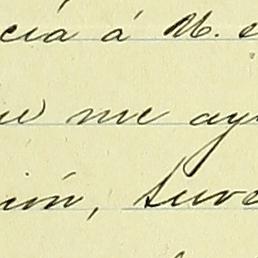 cia á M. s
ue me ay
ión, tuve